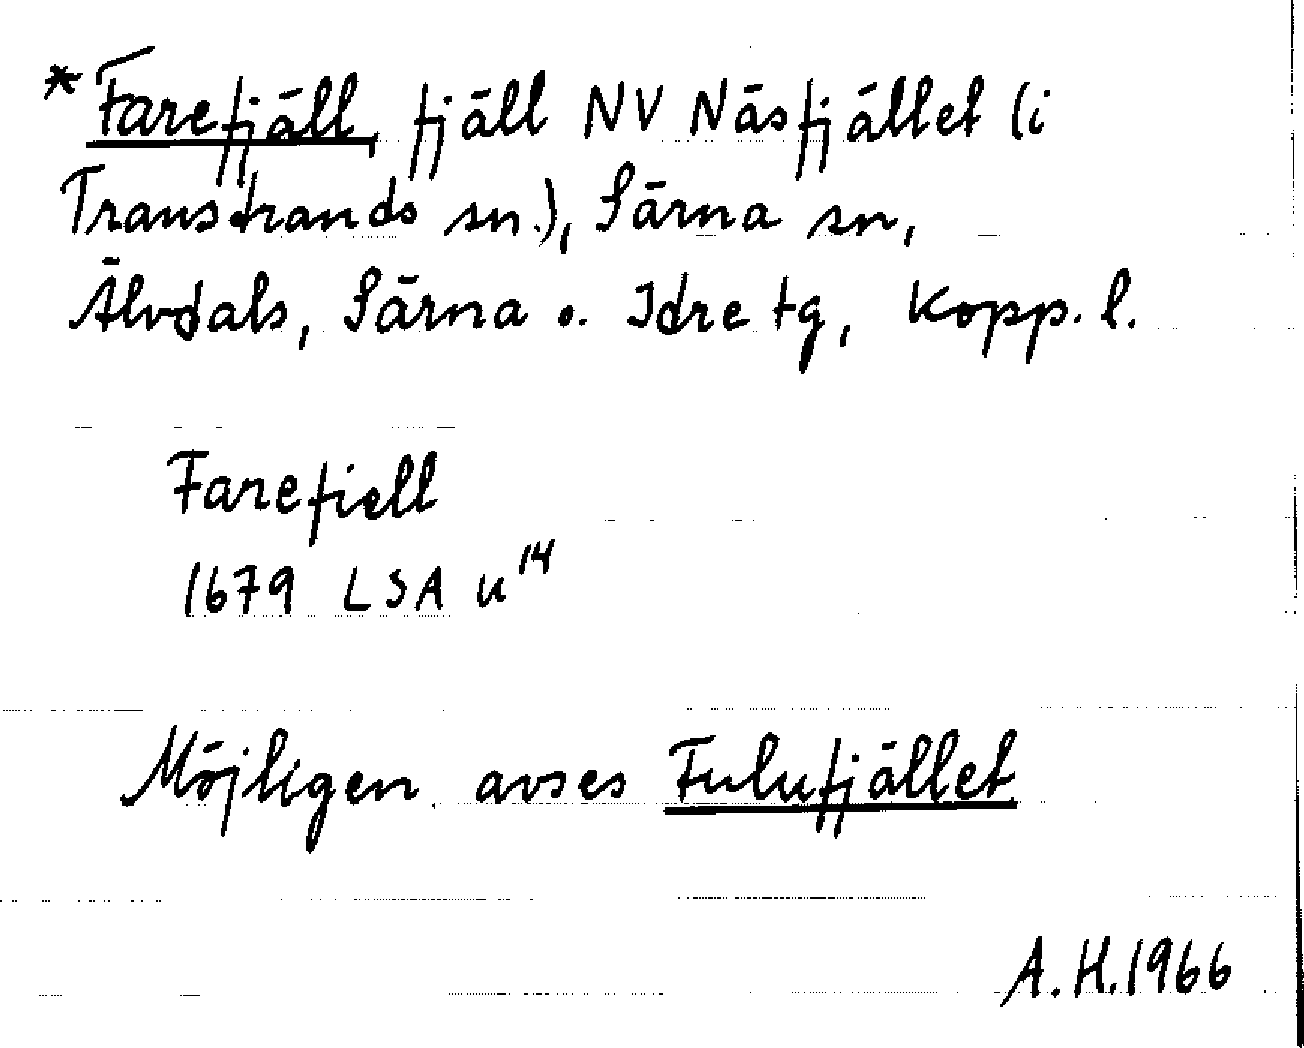 *Farefjäll, fjäll NV Näsfjället (i
Transtrands sn.), Särna sn,
Älvdals, Särna o. Idre tg, Kopp. l.
Farefiell
1679 LSA u14
Möjligen avses Fulufjället
A.H.1966